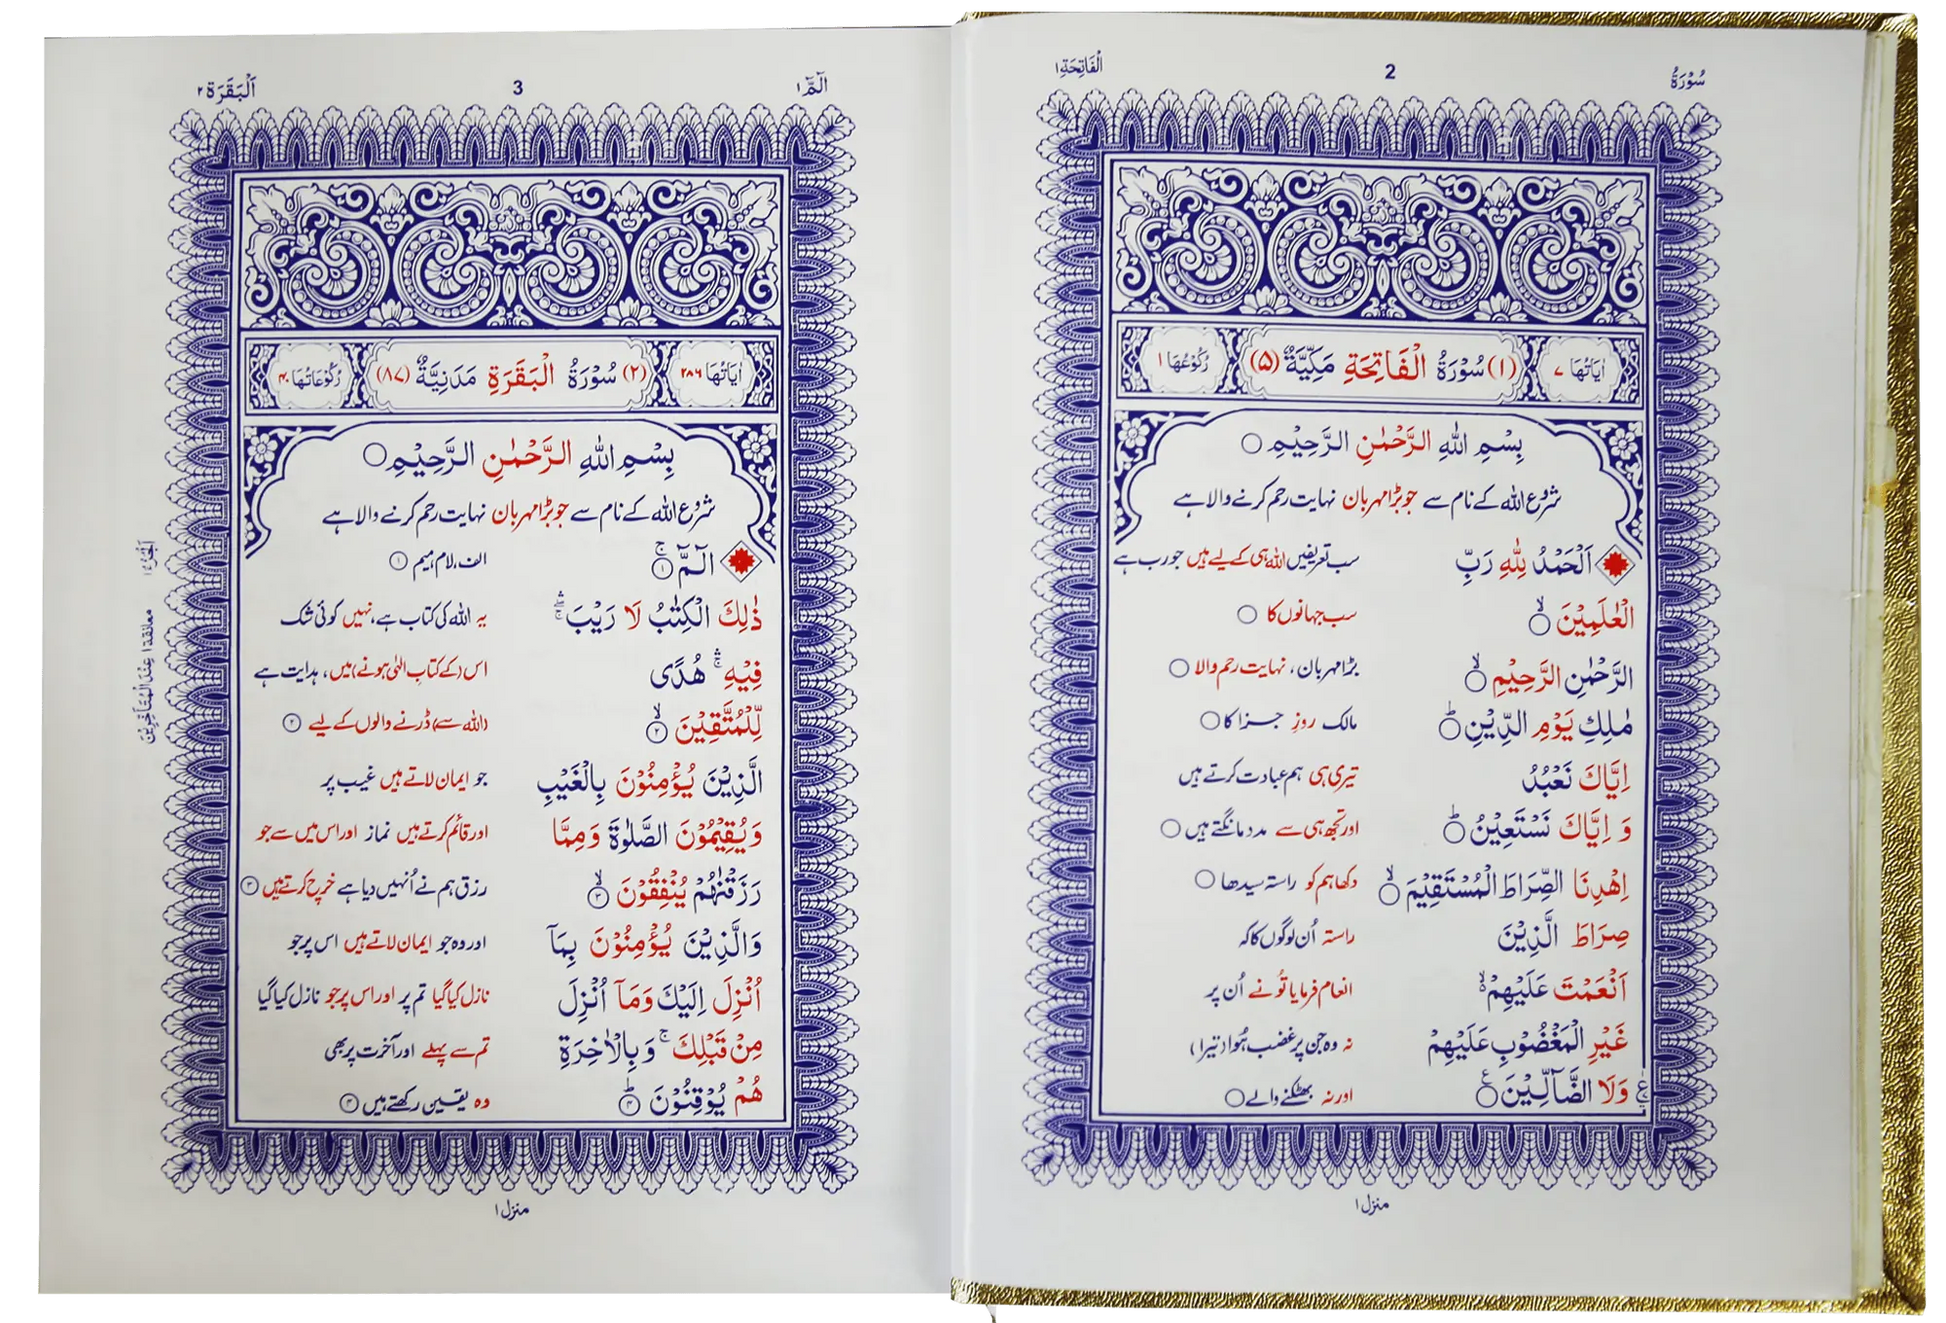 سُوْرَةُ 2 اَلْفَاتِحَةِ ١
اٰيَاتُهَا ٧ (١) سُوْرَةُ الْفَاتِحَةِ مَكِّيَّةٌ (٥) رُكُوْعُهَا ١
بِسْمِ اللّٰهِ الرَّحْمٰنِ الرَّحِيْمِ ○
شروع اللہ کے نام سے جو بڑا مہربان نہایت رحم کرنے والا ہے
اَلْحَمْدُ لِلّٰهِ رَبِّ سب تعریفیں اللہ ہی کے لیے ہیں جو رب ہے
الْعٰلَمِيْنَ ۙ○ سب جہانوں کا ○
الرَّحْمٰنِ الرَّحِيْمِ ۙ○ بڑا مہربان، نہایت رحم والا ○
مٰلِكِ يَوْمِ الدِّيْنِ ؕ○ مالک روزِ جزا کا ○
اِيَّاكَ نَعْبُدُ تیری ہی ہم عبادت کرتے ہیں
وَ اِيَّاكَ نَسْتَعِيْنُ ؕ○ اور تجھ ہی سے مدد مانگتے ہیں ○
اِهْدِنَا الصِّرَاطَ الْمُسْتَقِيْمَ ۙ○ دکھا ہم کو راستہ سیدھا ○
صِرَاطَ الَّذِيْنَ راستہ اُن لوگوں کا کہ
اَنْعَمْتَ عَلَيْهِمْ ۙ انعام فرمایا تُو نے اُن پر
غَيْرِ الْمَغْضُوْبِ عَلَيْهِمْ نہ وہ جن پر غضب ہُوا (تیرا)
وَلَا الضَّآلِّيْنَ ○ع اور نہ بھٹکنے والے ○
منزل ١
الٓمّٓ ١ 3 اَلْبَقَرَة ٢
اٰيَاتُهَا ٢٨٦ (٢) سُوْرَةُ الْبَقَرَةِ مَدَنِيَّةٌ (٨٧) رُكُوْعَاتُهَا ٤٠
بِسْمِ اللّٰهِ الرَّحْمٰنِ الرَّحِيْمِ ○
شروع اللہ کے نام سے جو بڑا مہربان نہایت رحم کرنے والا ہے
الٓمّٓ ۚ ١ الف، لام، میم ١
ذٰلِكَ الْكِتٰبُ لَا رَيْبَ ۛۚ یہ اللہ کی کتاب ہے، نہیں کوئی شک
فِيْهِ ۛۚ هُدًى اس (کے کتابِ الٰہی ہونے) میں، ہدایت ہے
لِّلْمُتَّقِيْنَ ۙ ٢ (اللہ سے) ڈرنے والوں کے لیے ٢
الَّذِيْنَ يُؤْمِنُوْنَ بِالْغَيْبِ جو ایمان لاتے ہیں غیب پر
وَيُقِيْمُوْنَ الصَّلٰوةَ وَمِمَّا اور قائم کرتے ہیں نماز اور اس میں سے جو
رَزَقْنٰهُمْ يُنْفِقُوْنَ ۙ ٣ رزق ہم نے اُنہیں دیا ہے خرچ کرتے ہیں ٣
وَالَّذِيْنَ يُؤْمِنُوْنَ بِمَآ اور وہ جو ایمان لاتے ہیں اس پر جو
اُنْزِلَ اِلَيْكَ وَمَآ اُنْزِلَ نازل کیا گیا تم پر اور اس پر جو نازل کیا گیا
مِنْ قَبْلِكَ ۚ وَبِالْاٰخِرَةِ تم سے پہلے اور آخرت پر بھی
هُمْ يُوْقِنُوْنَ ؕ ٤ وہ یقین رکھتے ہیں ٤
معانقة ١ عِنْدَ الْمُتَاَخِّرِيْنَ
منزل ١